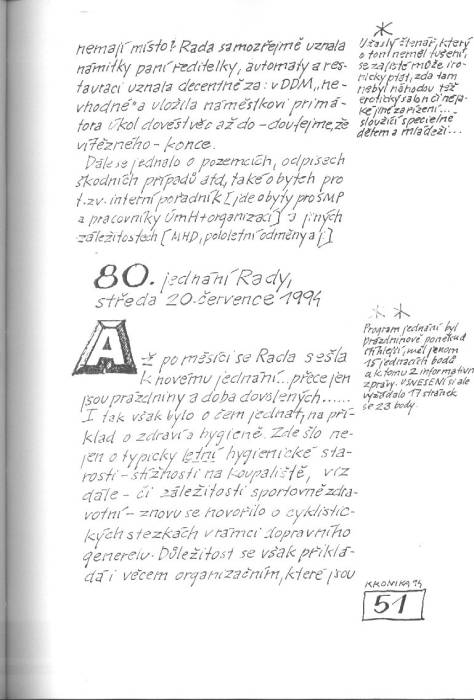 nemají místo? Rada samozřejmě uznala
námitky paní ředitelky, automaty a res-
tauraci uznala decentně za: v DDM „ne-
vhodné“ a uložila náměstkovi primá-
tora úkol dovést věc až do – doufejme, že
vítězného – konce.
Dále se jednalo o pozemcích, odpisech
škodních případů atd, také o bytech pro
t.zv. interní pořadník [jde o byty pro SMP
a pracovníky ÚmH + organizací] a jiných
záležitostech [MHD, pololetní odměny a j.]
80. jednání Rady,
středa 20. července 1994
Až po měsíci se Rada sešla
k novému jednání... přece jen
jsou prázdniny a doba dovolených......
I tak však bylo o čem jednat, na pří-
klad o zdraví a hygieně. Zde šlo ne-
jen o typicky letní hygienické sta-
rosti – stížnosti na koupaliště, viz
dále – či záležitosti sportovně zdra-
votní – znovu se hovořilo o cyklistic-
kých stezkách v rámci dopravního
generelu. Důležitost se však přiklá-
dá i věcem organizačním, které jsou
*
Užaslý čtenář, který
o tom neměl tušení,
se zajisté může iro-
nicky ptát, zda tam
nebyl náhodou též
erotický salon či něja-
ké jiné zařízení...
sloužící specielně
dětem a mládeži...
* *
Program jednání byl
prázdninově poněkud
štíhlejší, měl jenom
15 jednacích bodů
a k tomu 2 informativní
zprávy. USNESENÍ si ale
vyžádalo 17 stránek
se 23 body.
KRONIKA 94
51